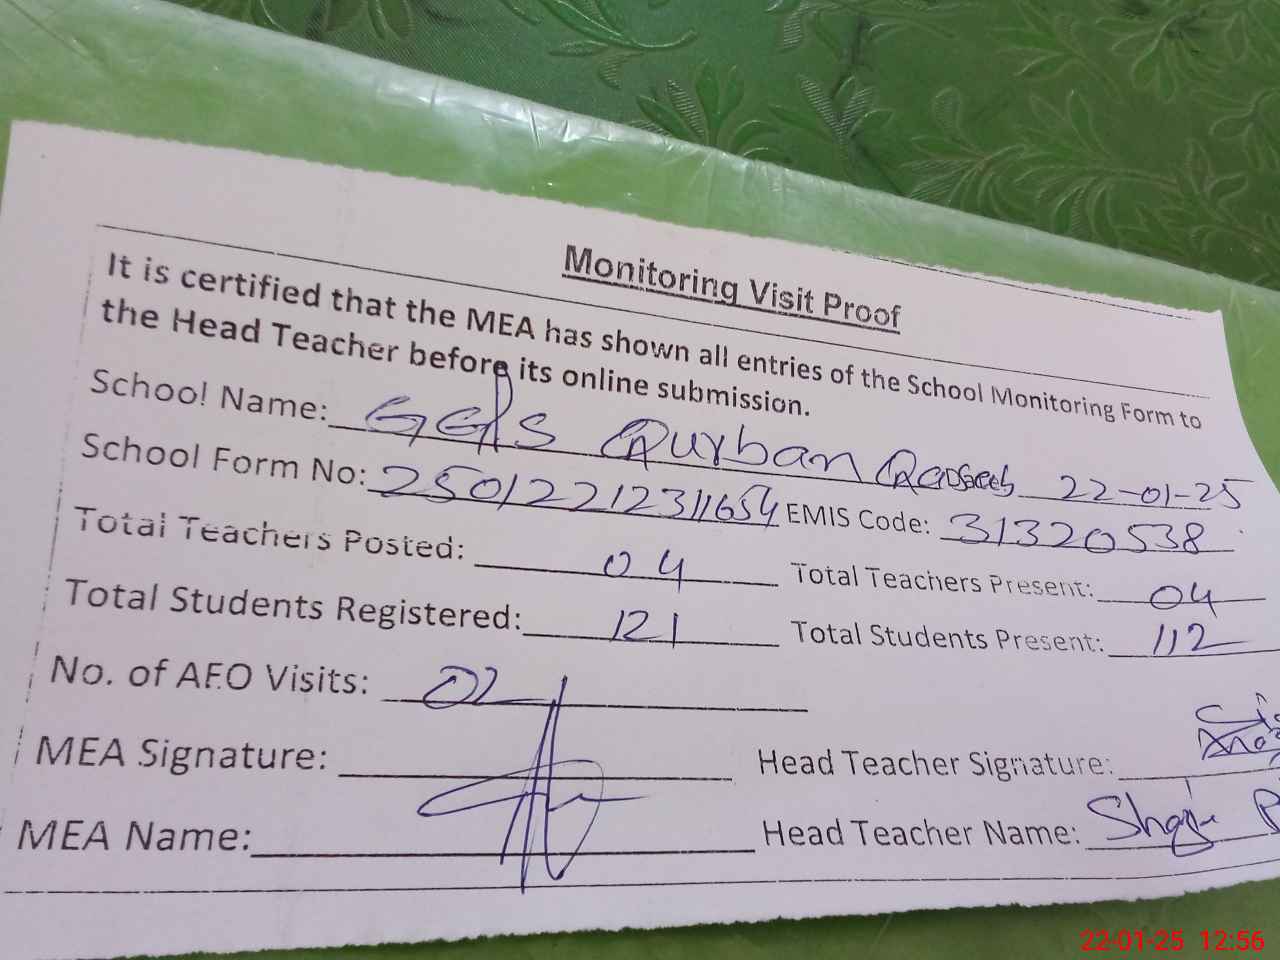 Monitoring Visit Proof
It is certified that the MEA has shown all entries of the School Monitoring Form to
the Head Teacher before its online submission.
School Name: GGPS Qurban 22-01-25
School Form No: 250122212311654 EMIS Code: 31320538
Total Teachers Posted: 04 Total Teachers Present: 04
Total Students Registered: 121 Total Students Present: 112
No. of AEO Visits: 02
MEA Signature: Head Teacher Signature:
MEA Name: Head Teacher Name:
22-01-25 12:56